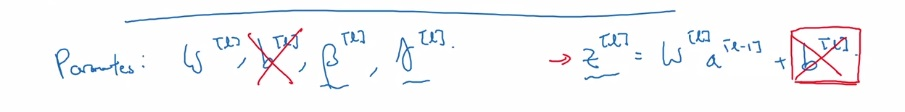 Parameters: W^[l], b^[l], β^[l], γ^[l]. → z^[l] = W^[l] a^[l-1] + b^[l]